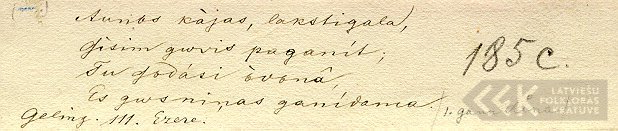 Aunos kājas, lakstigala,
Jisim gwvis paganít;
Tu dodási òvonâ,
Es gwsniņas ganídama.
Geling. 111. Ezere.
185c.
LATVIEŠU
FOLKLORAS
KRĀTUVE